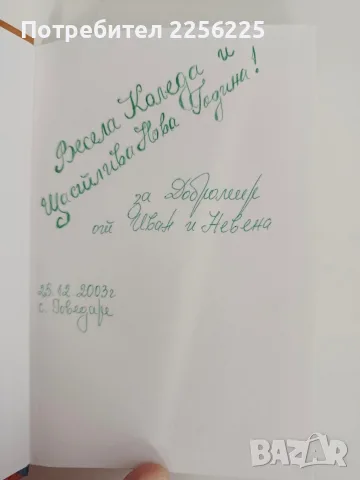 Потребител 2256225
Весела Коледа и
Щастлива Нова Година!
за Добромир
от Иван и Невена
25.12.2003г
с. Говедаре
BAZAR
bg